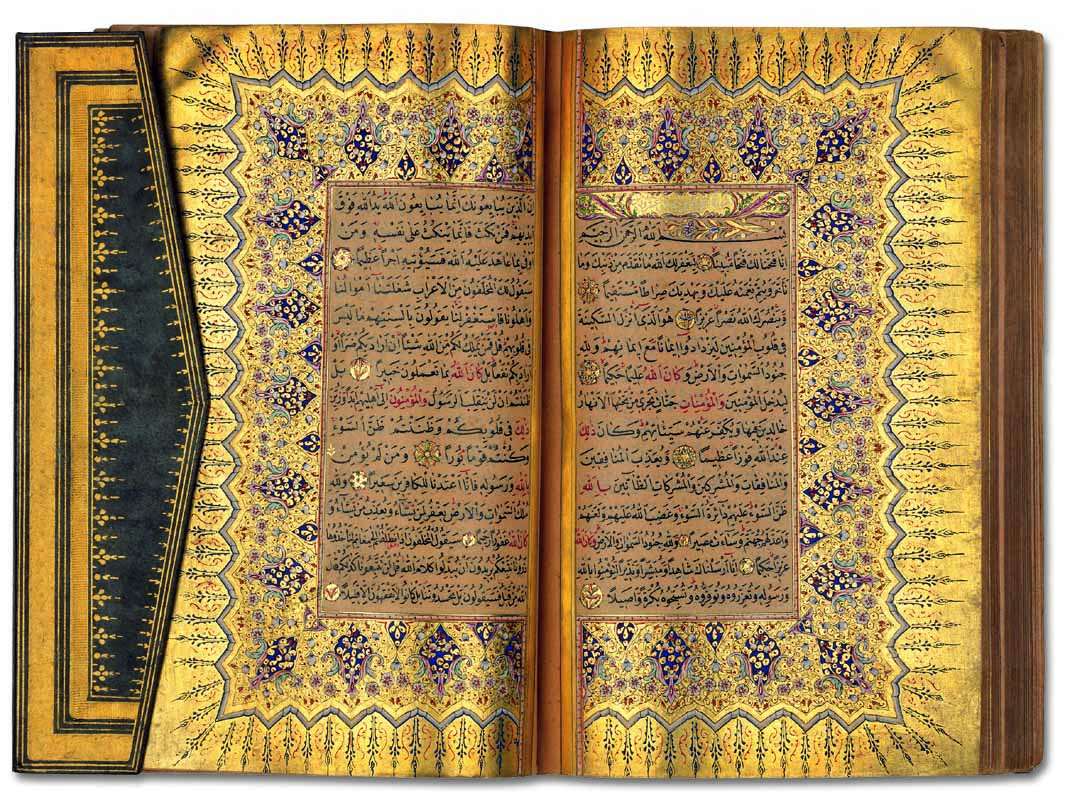 بسم الله الرحمن الرحيم
انا فتحنا لك فتحا مبينا ليغفر لك الله ما تقدم من ذنبك وما
تأخر ويتم نعمته عليك ويهديك صراطا مستقيما
وينصرك الله نصرا عزيزا هو الذي انزل السكينة
في قلوب المؤمنين ليزدادوا ايمانا مع ايمانهم ولله
جنود السموات والارض وكان الله عليما حكيما
ليدخل المؤمنين والمؤمنات جنات تجري من تحتها الانهار
خالدين فيها ويكفر عنهم سيئاتهم وكان ذلك
عند الله فوزا عظيما ويعذب المنافقين
والمنافقات والمشركين والمشركات الظانين بالله
ظن السوء عليهم دائرة السوء وغضب الله عليهم ولعنهم
واعد لهم جهنم وساءت مصيرا ولله جنود السموات والارض وكان الله
عزيزا حكيما انا ارسلناك شاهدا ومبشرا ونذيرا لتؤمنوا بالله
ورسوله وتعزروه وتوقروه وتسبحوه بكرة واصيلا
ان الذين يبايعونك انما يبايعون الله يد الله فوق
ايديهم فمن نكث فانما ينكث على نفسه ومن
اوفى بما عاهد عليه الله فسيؤتيه اجرا عظيما
سيقول لك المخلفون من الاعراب شغلتنا اموالنا
واهلونا فاستغفر لنا يقولون بالسنتهم ما ليس
في قلوبهم قل فمن يملك لكم من الله شيئا ان اراد بكم ضرا او
اراد بكم نفعا بل كان الله بما تعملون خبيرا بل
ظننتم ان لن ينقلب الرسول والمؤمنون الى اهليهم ابدا وزين
ذلك في قلوبكم وظننتم ظن السوء
وكنتم قوما بورا ومن لم يؤمن
بالله ورسوله فانا اعتدنا للكافرين سعيرا ولله
ملك السموات والارض يغفر لمن يشاء ويعذب من يشاء و
كان الله غفورا رحيما سيقول المخلفون اذا انطلقتم الى مغانم لتأخذوها
ذرونا نتبعكم يريدون ان يبدلوا كلام الله قل لن تتبعونا كذلكم قال
الله من قبل فسيقولون بل تحسدوننا بل كانوا لا يفقهون الا قليلا